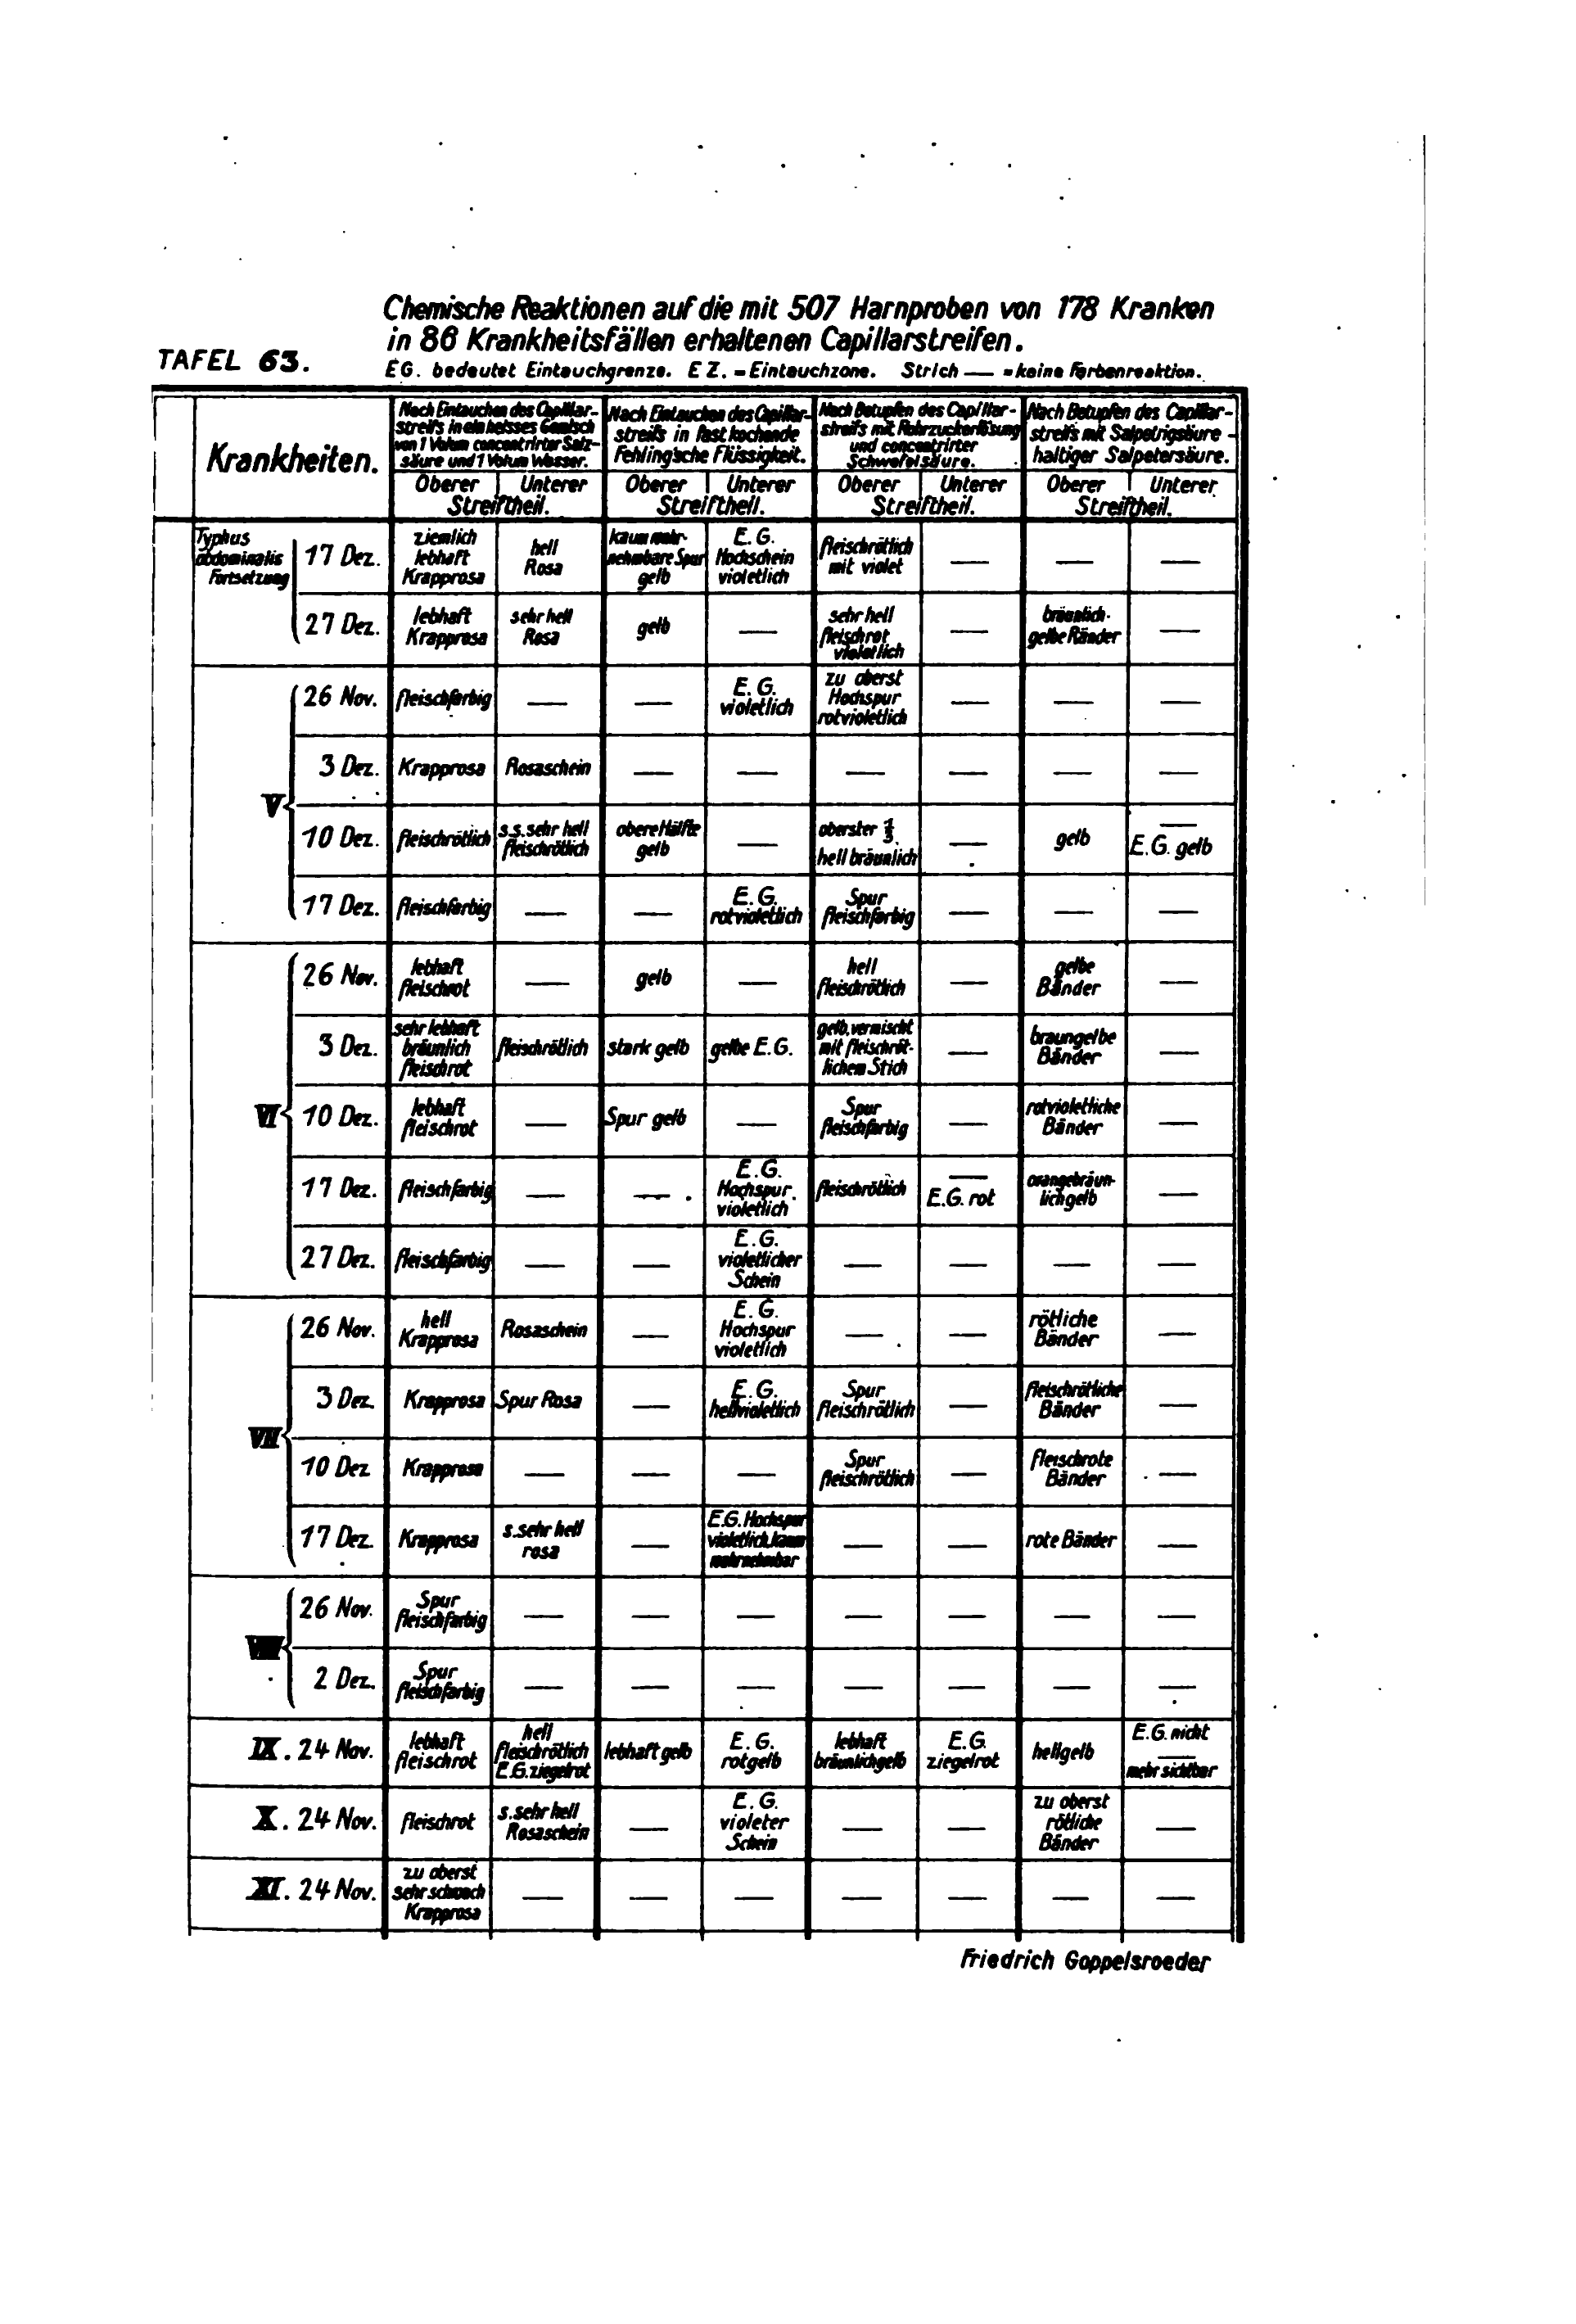 Chemische Reaktionen auf die mit 507 Harnproben von 178 Kranken
in 86 Krankheitsfällen erhaltenen Capillarstreifen.
TAFEL 63.
EG. bedeutet Eintauchgrenze. EZ. = Eintauchzone. Strich — = keine Farbenreaktion.
Krankheiten.
Nach Eintauchen des Capillar-
streifs in ein heisses Gemisch
von 1 Volum concentrirter Salz-
säure und 1 Volum Wasser.
Nach Eintauchen des Capillar-
streifs in fast kochende
Fehling'sche Flüssigkeit.
Nach Betupfen des Capillar-
streifs mit Rohrzuckerlösung
und concentrirter
Schwefelsäure.
Nach Betupfen des Capillar-
streifs mit Salpetrigsäure-
haltiger Salpetersäure.
Oberer | Unterer Oberer | Unterer Oberer | Unterer Oberer | Unterer
Streiftheil. Streiftheil. Streiftheil. Streiftheil.
Typhus
abdominalis
Fortsetzung
17 Dez.
ziemlich
lebhaft
Krapprosa
hell
Rosa
kaum wahr-
nehmbare Spur
gelb
E.G.
Hochschein
violetlich
fleischrötlich
mit violet
—
—
—
27 Dez.
lebhaft
Krapprosa
sehr hell
Rosa
gelb
—
sehr hell
fleischrot
violetlich
—
bräunlich-
gelbe Ränder
—
V
26 Nov.
fleischfarbig
—
—
E.G.
violetlich
zu oberst
Hochspur
rotvioletlich
—
—
—
3 Dez.
Krapprosa
Rosaschein
—
—
—
—
—
—
10 Dez.
fleischrötlich
s.s.sehr hell
fleischrötlich
obere Hälfte
gelb
—
oberster 1/3
hell bräunlich
—
gelb
—
E.G. gelb
17 Dez.
fleischfarbig
—
—
E.G.
rotvioletlich
Spur
fleischfarbig
—
—
—
VI
26 Nov.
lebhaft
fleischrot
—
gelb
—
hell
fleischrötlich
—
gelbe
Bänder
—
3 Dez.
sehr lebhaft
bräunlich
fleischrot
fleischrötlich
stark gelb
gelbe E.G.
gelb, vermischt
mit fleischröt-
lichem Stich
—
braungelbe
Bänder
—
10 Dez.
lebhaft
fleischrot
—
Spur gelb
—
Spur
fleischfarbig
—
rotvioletliche
Bänder
—
17 Dez.
fleischfarbig
—
—
E.G.
Hochspur
violetlich
fleischrötlich
—
E.G. rot
orangebräun-
lichgelb
—
27 Dez.
fleischfarbig
—
—
E.G.
violetlicher
Schein
—
—
—
—
VII
26 Nov.
hell
Krapprosa
Rosaschein
—
E.G.
Hochspur
violetlich
—
—
rötliche
Bänder
—
3 Dez.
Krapprosa
Spur Rosa
—
E.G.
hellvioletlich
Spur
fleischrötlich
—
fleischrötliche
Bänder
—
10 Dez
Krapprosa
—
—
—
Spur
fleischrötlich
—
fleischrote
Bänder
—
17 Dez.
Krapprosa
s.sehr hell
rosa
—
E.G. Hochspur
violetlich, kaum
wahrnehmbar
—
—
rote Bänder
—
VIII
26 Nov.
Spur
fleischfarbig
—
—
—
—
—
—
—
2 Dez.
Spur
fleischfarbig
—
—
—
—
—
—
—
IX. 24 Nov.
lebhaft
fleischrot
hell
fleischrötlich
E.G. ziegelrot
lebhaft gelb
E.G.
rotgelb
lebhaft
bräunlichgelb
E.G.
ziegelrot
hellgelb
E.G. nicht
—
mehr sichtbar
X. 24 Nov.
fleischrot
s.sehr hell
Rosaschein
—
E.G.
violeter
Schein
—
—
zu oberst
rötliche
Bänder
—
XI. 24 Nov.
zu oberst
sehr schwach
Krapprosa
—
—
—
—
—
—
—
Friedrich Goppelsroeder